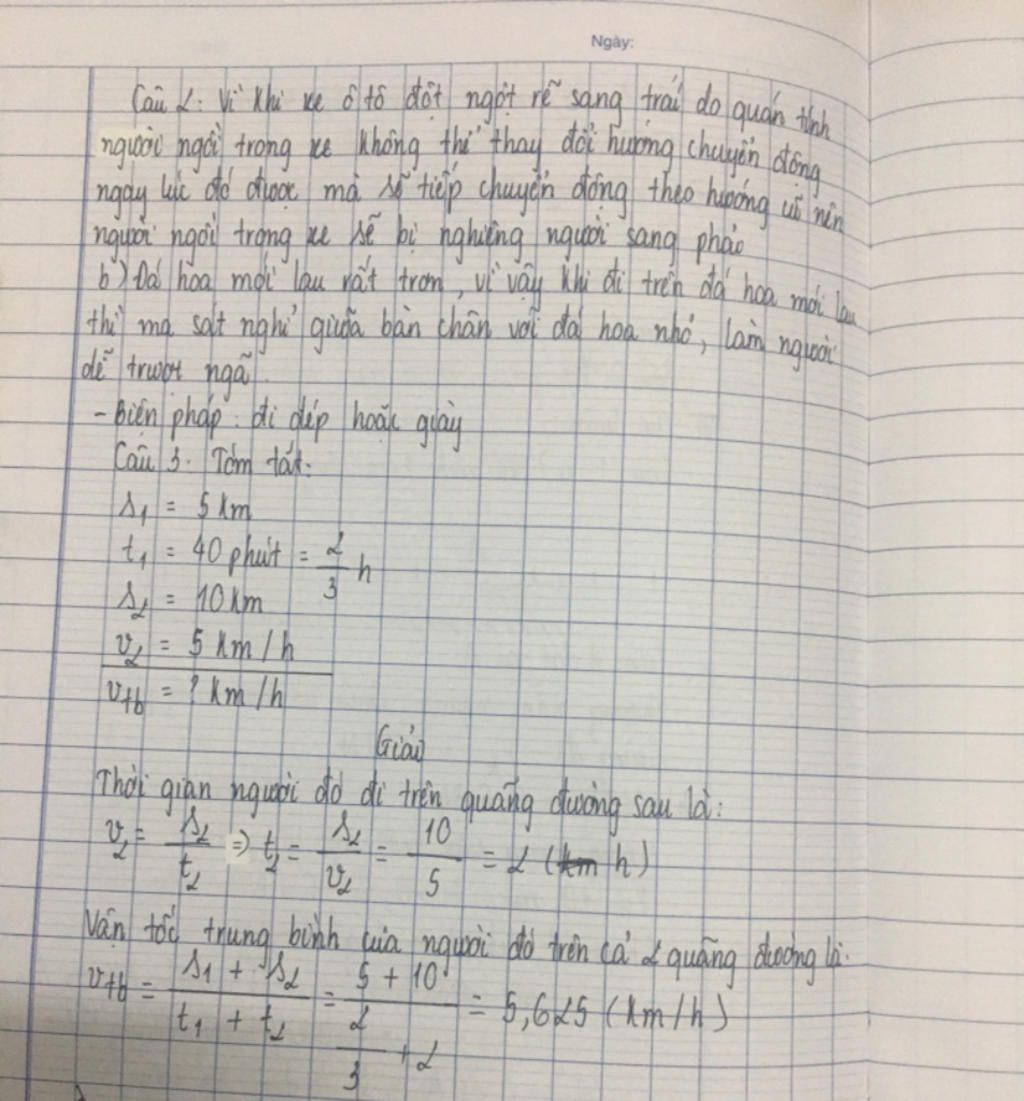 Ngày:
Câu 2: Vì khi xe ô tô đột ngột rẽ sang trái do quán tính
người ngồi trong xe không thể thay đổi hướng chuyển động
ngay lúc đó được mà sẽ tiếp chuyển động theo hướng cũ nên
người ngồi trong xe sẽ bị nghiêng người sang phải
b) Đá hoa mới lau rất trơn, vì vậy khi đi trên đá hoa mới lau
thì ma sát nghỉ giữa bàn chân với đá hoa nhỏ, làm người
dễ trượt ngã.
- Biện pháp: đi dép hoặc giày
Câu 3. Tóm tắt:
s₁ = 5 km
t₁ = 40 phút = 2/3 h
s₂ = 10 km
v₂ = 5 km/h
vtb = ? km/h
Giải
Thời gian người đó đi trên quãng đường sau là:
v₂ = s₂/t₂ => t₂ = s₂/v₂ = 10/5 = 2 (km h)
Vận tốc trung bình của người đó trên cả 2 quãng đường là:
vtb = (s₁ + s₂)/(t₁ + t₂) = (5 + 10)/(2/3 + 2) = 5,625 (km/h)